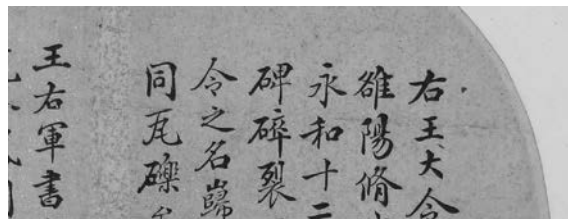 右王大令
雒陽脩
永和十二
碑碎裂
令之名歸
同瓦礫
王右軍書